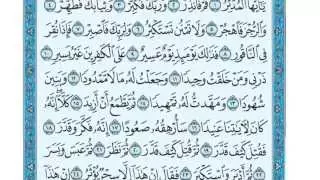 يَٰٓأَيُّهَا ٱلْمُدَّثِّرُ ۝١ قُمْ فَأَنذِرْ ۝٢ وَرَبَّكَ فَكَبِّرْ ۝٣ وَثِيَابَكَ فَطَهِّرْ ۝٤
وَٱلرُّجْزَ فَٱهْجُرْ ۝٥ وَلَا تَمْنُن تَسْتَكْثِرُ ۝٦ وَلِرَبِّكَ فَٱصْبِرْ ۝٧ فَإِذَا نُقِرَ
فِى ٱلنَّاقُورِ ۝٨ فَذَٰلِكَ يَوْمَئِذٍ يَوْمٌ عَسِيرٌ ۝٩ عَلَى ٱلْكَٰفِرِينَ غَيْرُ يَسِيرٍ ۝١٠
ذَرْنِى وَمَنْ خَلَقْتُ وَحِيدًا ۝١١ وَجَعَلْتُ لَهُۥ مَالًا مَّمْدُودًا ۝١٢ وَبَنِينَ
شُهُودًا ۝١٣ وَمَهَّدتُّ لَهُۥ تَمْهِيدًا ۝١٤ ثُمَّ يَطْمَعُ أَنْ أَزِيدَ ۝١٥ كَلَّآ إِنَّهُۥ
كَانَ لِءَايَٰتِنَا عَنِيدًا ۝١٦ سَأُرْهِقُهُۥ صَعُودًا ۝١٧ إِنَّهُۥ فَكَّرَ وَقَدَّرَ ۝١٨
فَقُتِلَ كَيْفَ قَدَّرَ ۝١٩ ثُمَّ قُتِلَ كَيْفَ قَدَّرَ ۝٢٠ ثُمَّ نَظَرَ ۝٢١ ثُمَّ عَبَسَ وَبَسَرَ
۝٢٢ ثُمَّ أَدْبَرَ وَٱسْتَكْبَرَ ۝٢٣ فَقَالَ إِنْ هَٰذَآ إِلَّا سِحْرٌ يُؤْثَرُ ۝٢٤ إِنْ هَٰذَآ